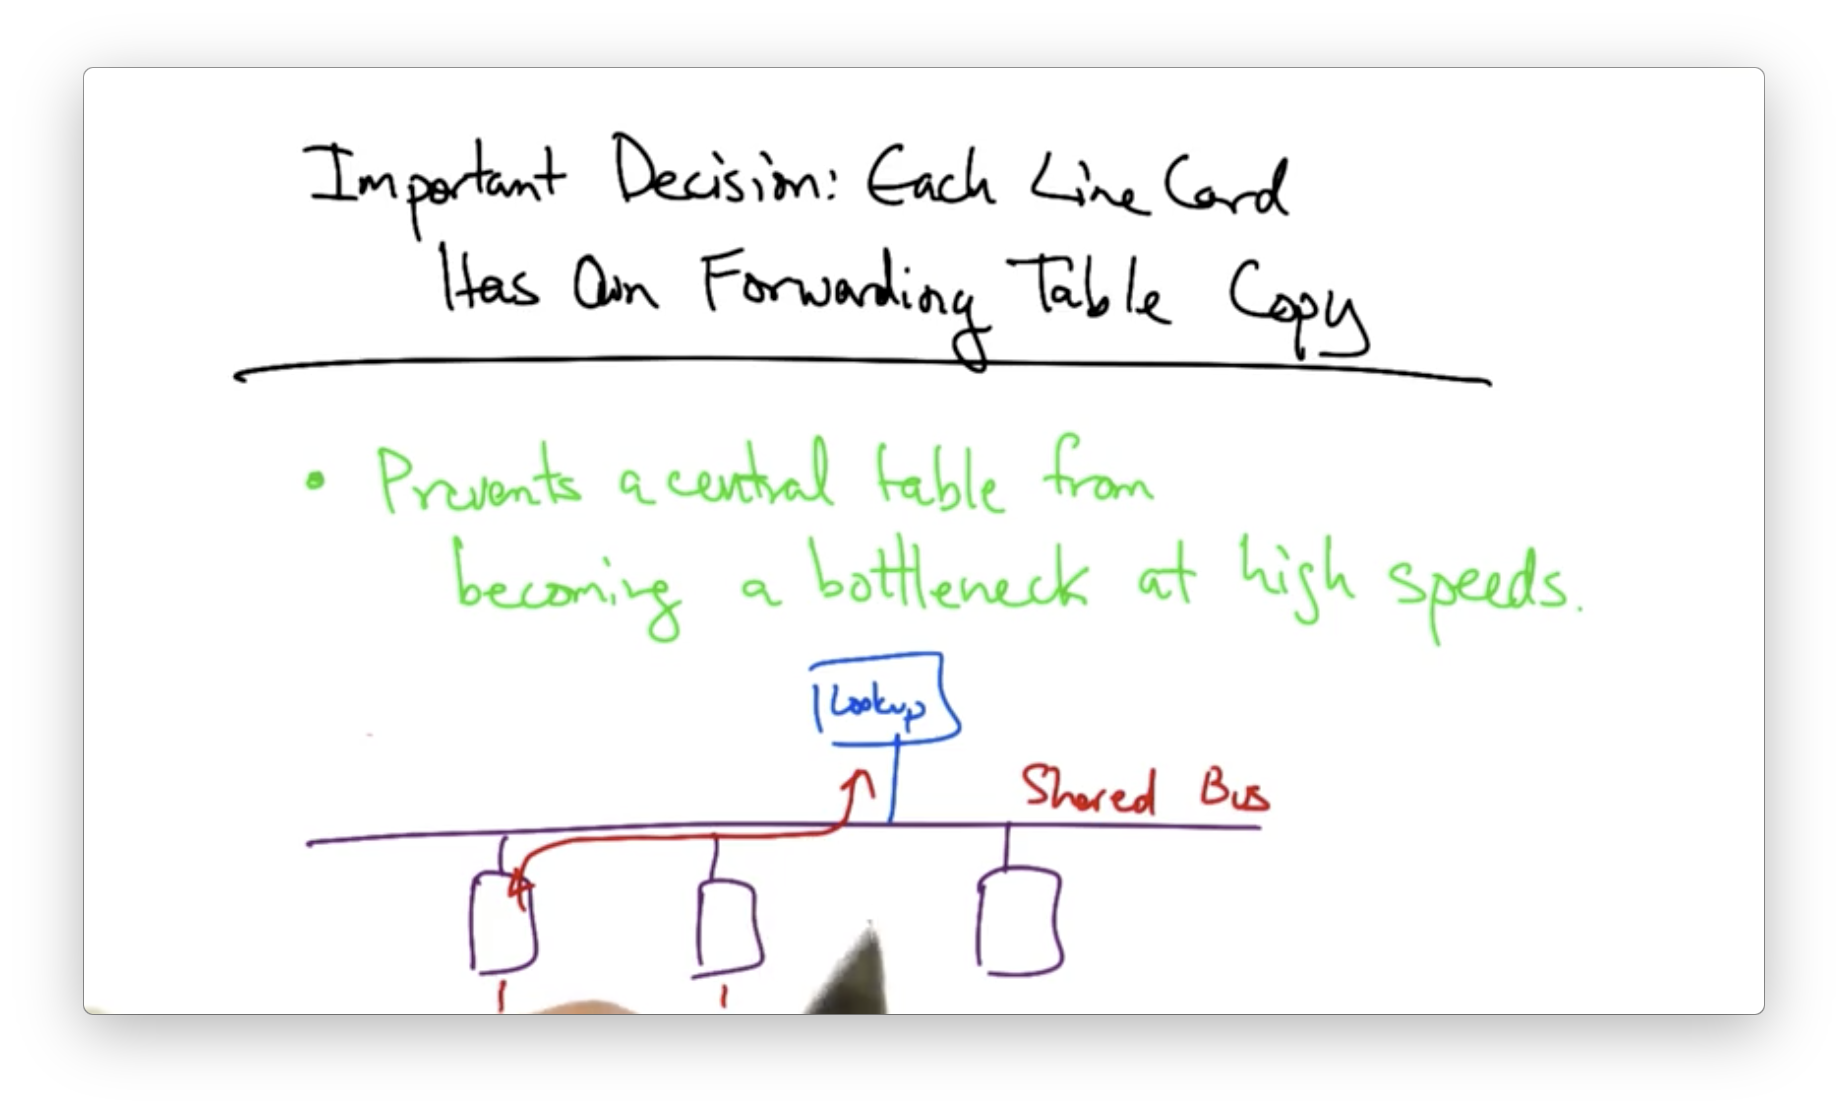 Important Decision: Each Line Card
Has Own Forwarding Table Copy
• Prevents a central table from
becoming a bottleneck at high speeds.
Lookup
Shared Bus